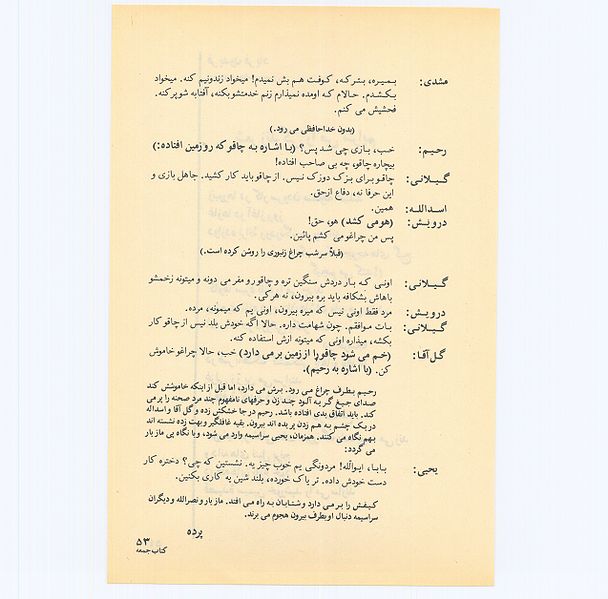 مشدی: بـمیـره، بـترکـه، کـوفـت هـم بش نمیدم! میخواد زندونیم کنه. میخواد
بـکـشـدم. حـالام کـه اومده نمیذارم زنم خدمتشو بکنه، آفتابه شو پرکنه.
فحشیش می کنم.
(بدون خداحافظی می رود.)
رحـیـم: خـب، بـازی چی شـد پس؟ (بـا اشـاره بـه چـاقو که روزمین افتاده:)
بیچاره چاقو، چه بی صاحب افتاده!
گـیـلانی: چاقـو بـرای بـزک دوزک نـیـس. ازچاقو باید کار کشید. جاهل بازی و
این حرفا نه، دفاع ازحق.
اسـدالـلـه: همین.
درویـش: (هومی کشد) هو، حق!
پس من چراغومی کشم پائین.
(قبلاً سرشب چراغ زنبوری را روشن کرده است.)
گـیـلانی: اونـی کـه بـار دردش سنگین تره و چاقورو مفر می دونه و میتونه زخمشو
باهاش بشکافه باید بره بیرون، نه هرکی.
درویـش: مرد فقط اونی نیس که میره بیرون، اونی یم که میمونه، مرده.
گـیـلانی: بـات مـوافقم. چـون شهامت داره. حالا اگه خودش بلد نیس ازچاقو کار
بکشه، میذاره اونی که میتونه ازش استفاده کنه.
گـل آقـا: (خـم می شود چاقو را از زمین بر می دارد) خب، حالا چراغو خاموش
کن. (با اشاره به رحیم).
رحـیـم بـطرف چراغ می رود. برش می دارد، اما قبل از اینکه خاموشش کند
صـدای جـیـغ گـر یـه آلـود چنـد زن و حرفهای نامفهوم چند مرد صحنه را پر می
کند. باید اتفاق بدی افتاده باشد. رحیم در جا خشکش زده و گل آقا و اسداله
دریـک چـشـم بـه هـم زدن پر یده اند بیرون. بقیه غافلگیر و بهت زده نشسته اند
بهم نگاه می کنند. همزمان، یحیی سراسیمه وارد می شود، و با نگاه پی ماز یار
می گردد:
یحیی: بـابـا، ایـوالّله! مردونگی یم خوب چیز یه. نشستین که چی؟ دختره کار
دست خودش داده. تر یاک خورده، بلند شین یه کاری بکنین.
کـیـفـش را بـر می دارد و شتـابـان بـه راه مـی افتـد. ماز یار و نصرالله و دیگران
سراسیمه دنبال او بطرف بیرون هجوم می برند.
پرده
۵۳
کتاب جمعه